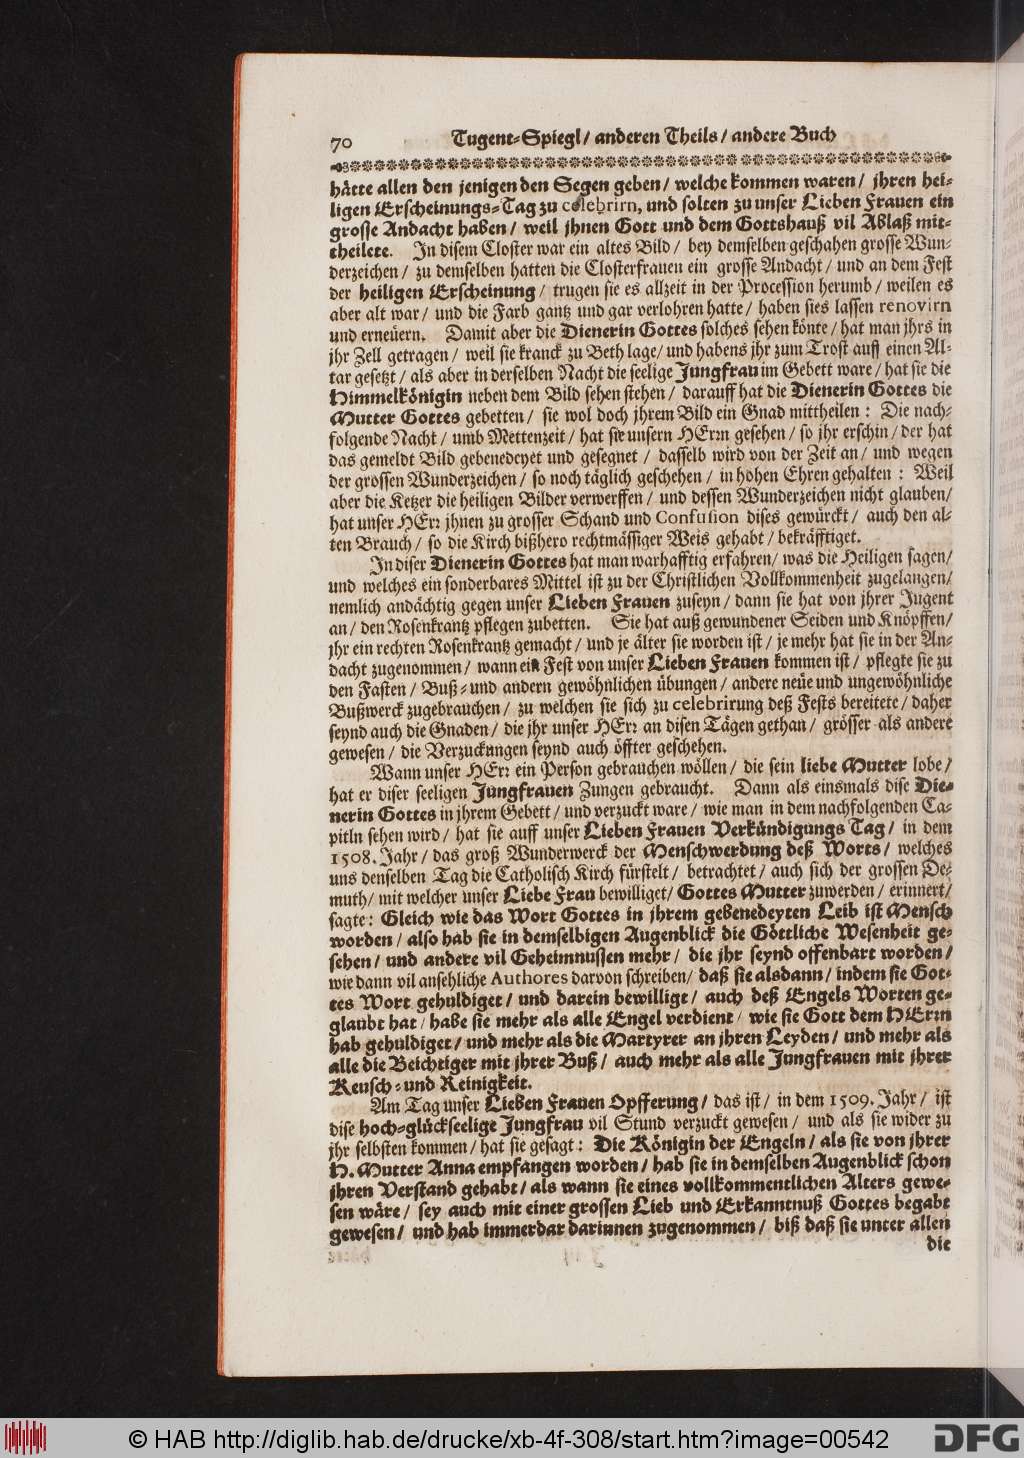 70 Tugent-Spiegl / anderen Theils / andere Buch
hätte allen den jenigen den Segen geben / welche kommen waren / jhren hei-
ligen Erscheinungs-Tag zu celebrirn, und solten zu unser Lieben Frauen ein
grosse Andacht haben / weil jhnen Gott und dem Gottshauß vil Ablaß mit-
theilete. In disem Closter war ein altes Bild / bey demselben geschahen grosse Wun-
derzeichen / zu demselben hatten die Closterfrauen ein grosse Andacht / und an dem Fest
der heiligen Erscheinung / trugen sie es allzeit in der Procession herumb / weilen es
aber alt war / und die Farb gantz und gar verlohren hatte / haben sies lassen renovirn
und erneüern. Damit aber die Dienerin Gottes solches sehen könte / hat man jhrs in
jhr Zell getragen / weil sie kranck zu Beth lage / und habens jhr zum Trost auff einen Al-
tar gesetzt / als aber in derselben Nacht die seelige Jungfrau im Gebett ware / hat sie die
Himmelkönigin neben dem Bild sehen stehen / darauff hat die Dienerin Gottes die
Mutter Gottes gebetten / sie wol doch jhrem Bild ein Gnad mittheilen : Die nach-
folgende Nacht / umb Mettenzeit / hat sie unsern HErrn gesehen / so jhr erschin / der hat
das gemeldt Bild gebenedeyet und gesegnet / dasselb wird von der Zeit an / und wegen
der grossen Wunderzeichen / so noch täglich geschehen / in hohen Ehren gehalten : Weil
aber die Ketzer die heiligen Bilder verwerffen / und dessen Wunderzeichen nicht glauben /
hat unser HErr jhnen zu grosser Schand und Confusion dises gewürckt / auch den al-
ten Brauch / so die Kirch bißhero rechtmässiger Weis gehabt / bekräfftiget.
In diser Dienerin Gottes hat man warhafftig erfahren / was die Heiligen sagen /
und welches ein sonderbares Mittel ist zu der Christlichen Vollkommenheit zugelangen /
nemlich andächtig gegen unser Lieben Frauen zuseyn / dann sie hat von jhrer Jugent
an / den Rosenkrantz pflegen zubetten. Sie hat auß gewundener Seiden und Knöpffen /
jhr ein rechten Rosenkrantz gemacht / und je älter sie worden ist / je mehr hat sie in der An-
dacht zugenommen / wann ein Fest von unser Lieben Frauen kommen ist / pflegte sie zu
den Fasten / Buß- und andern gewöhnlichen übungen / andere neüe und ungewöhnliche
Bußwerck zugebrauchen / zu welchen sie sich zu celebrirung deß Fests bereitete / daher
seynd auch die Gnaden / die jhr unser HErr an disen Tägen gethan / grösser als andere
gewesen / die Verzuckungen seynd auch öffter geschehen.
Wann unser HErr ein Person gebrauchen wöllen / die sein liebe Mutter lobe /
hat er diser seeligen Jungfrauen Zungen gebraucht. Dann als einsmals dise Die-
nerin Gottes in jhrem Gebett / und verzuckt ware / wie man in dem nachfolgenden Ca-
pitln sehen wird / hat sie auff unser Lieben Frauen Verkündigungs Tag / in dem
1508. Jahr / das groß Wunderwerck der Menschwerdung deß Worts / welches
uns denselben Tag die Catholisch Kirch fürstelt / betrachtet / auch sich der grossen De-
muth / mit welcher unser Liebe Frau bewilliget / Gottes Mutter zuwerden / erinnert /
sagte : Gleich wie das Wort Gottes in jhrem gebenedeyten Leib ist Mensch
worden / also hab sie in demselbigen Augenblick die Göttliche Wesenheit ge-
sehen / und andere vil Geheimnussen mehr / die jhr seynd offenbart worden /
wie dann vil ansehliche Authores darvon schreiben / daß sie alsdann / indem sie Got-
tes Wort gehuldiget / und darein bewilligt / auch deß Engels Worten ge-
glaubt hat / habe sie mehr als alle Engel verdient / wie sie Gott dem HErrn
hab gehuldiget / und mehr als die Martyrer an jhren Leyden / und mehr als
alle die Beichtiger mit jhrer Buß / auch mehr als alle Jungfrauen mit jhrer
Keusch- und Reinigkeit.
Am Tag unser Lieben Frauen Opfferung / das ist / in dem 1509. Jahr / ist
dise hoch-glückseelige Jungfrau vil Stund verzuckt gewesen / und als sie wider zu
jhr selbsten kommen / hat sie gesagt : Die Königin der Engeln / als sie von jhrer
H. Mutter Anna empfangen worden / hab sie in demselben Augenblick schon
jhren Verstand gehabt / als wann sie eines vollkommentlichen Alters gewe-
sen wäre / sey auch mit einer grossen Lieb und Erkanntnuß Gottes begabt
gewesen / und hab immerdar darinnen zugenommen / biß daß sie unter allen
die
© HAB http://diglib.hab.de/drucke/xb-4f-308/start.htm?image=00542
DFG